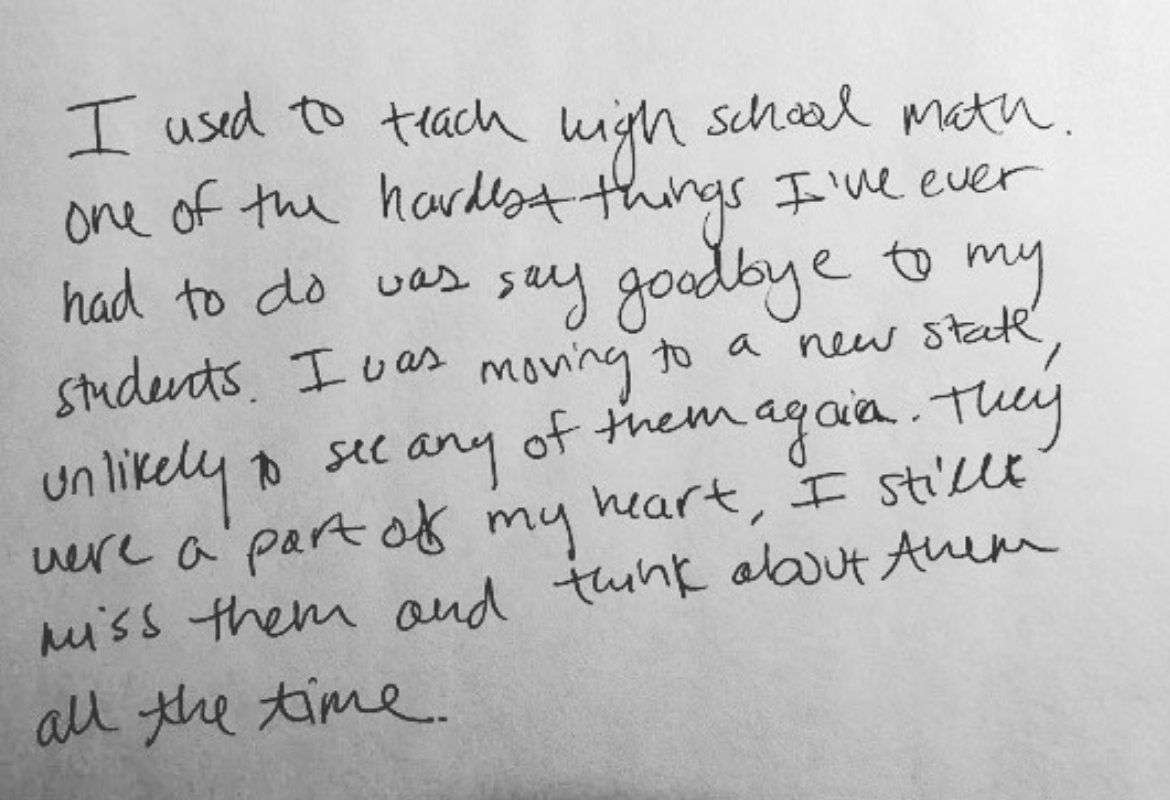 I used to teach high school math.
one of the hardest things I've ever
had to do was say goodbye to my
students. I was moving to a new state,
unlikely to see any of them again. They
were a part of my heart, I still
miss them and think about them
all the time.